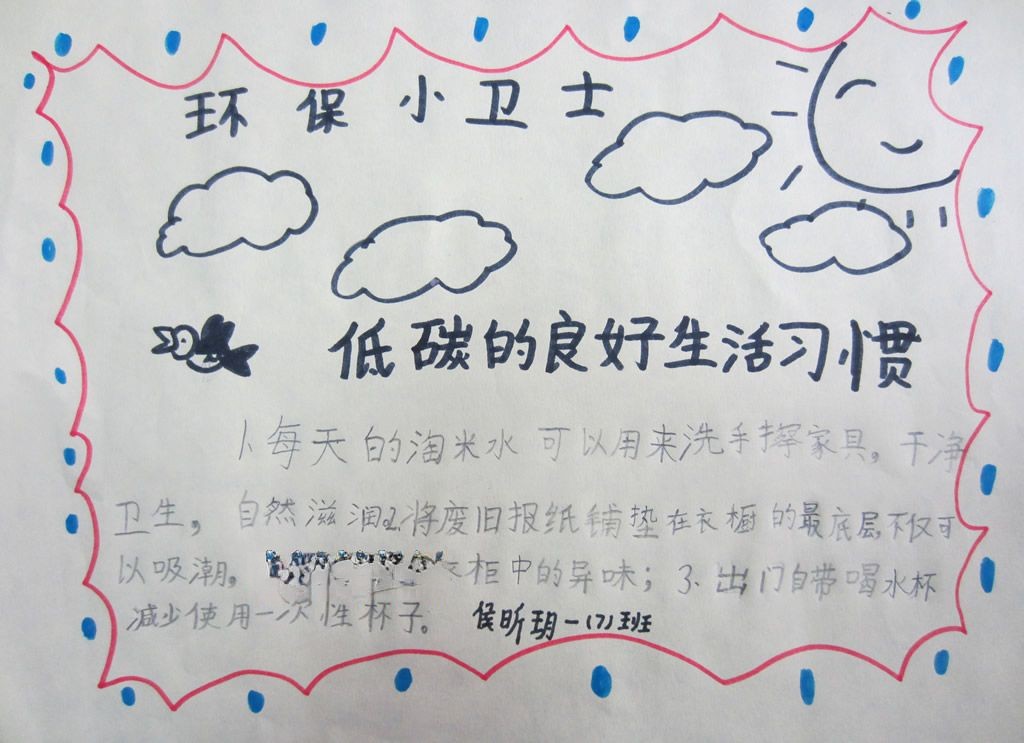 环保小卫士
低碳的良好生活习惯
1、每天的淘米水可以用来洗手擦家具，干净
卫生，自然滋润2.将废旧报纸铺垫在衣橱的最底层,不仅可
以吸潮。柜中的异味；3、出门自带喝水杯
减少使用一次性杯子。侯昕玥一(7)班